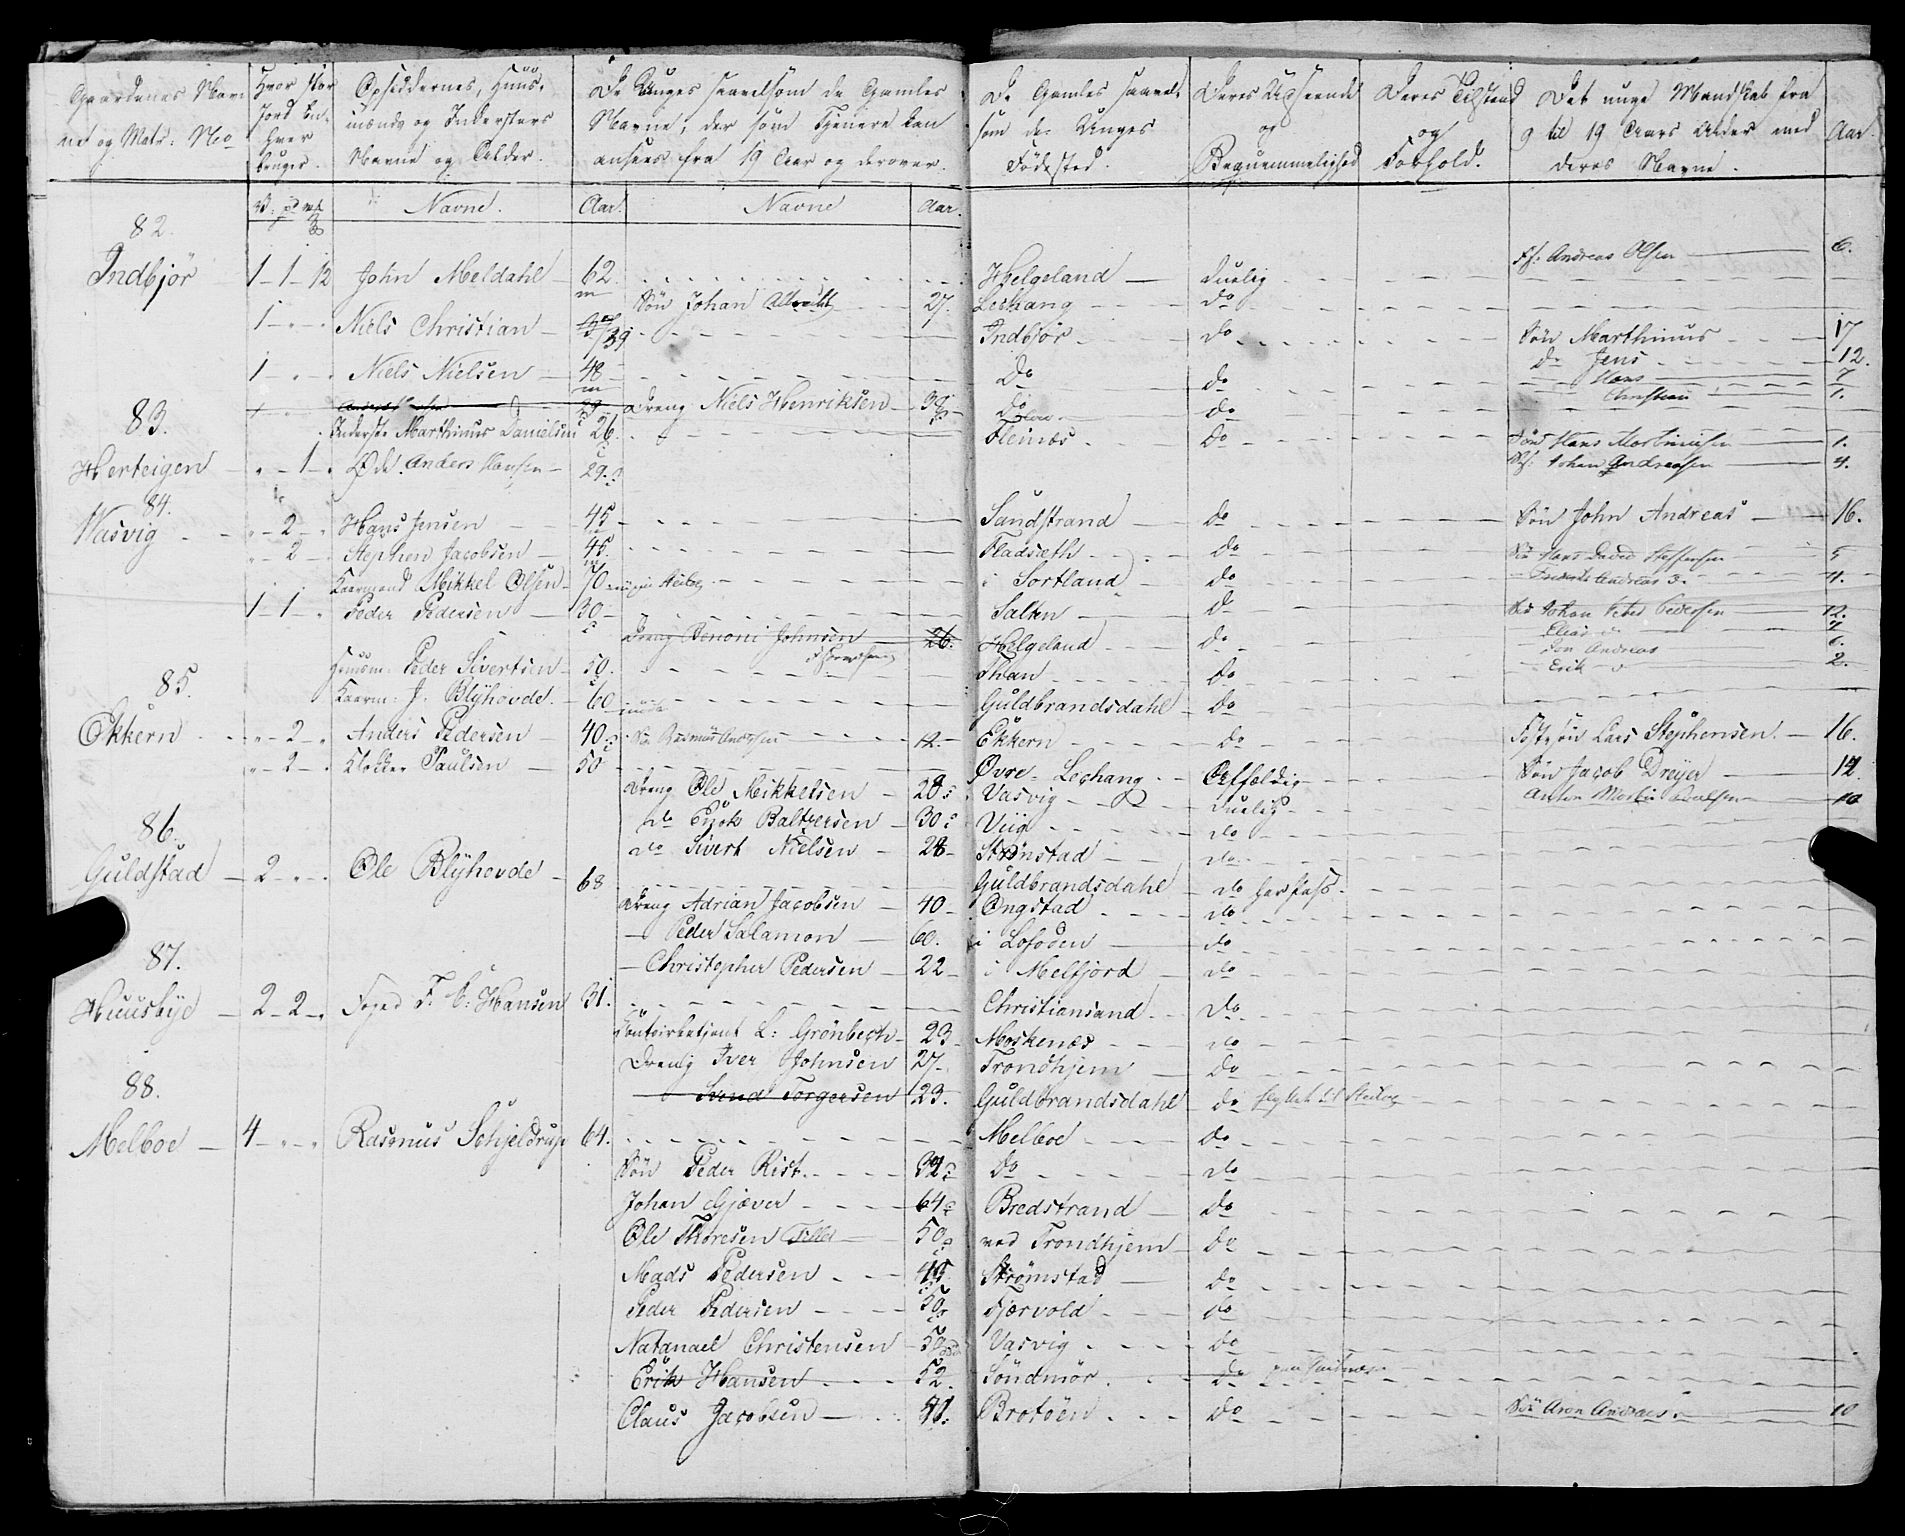 Gaardenes Nav- Hvor stor Opsiddernes, Huus- De Unges saavelsom de Gamles De Gamles saavel- Deres Udseende Deres Tilstand Det unge Mandskab fra
ne og Matr: No Jord En- mænds og Indersters Navne, der som Tjenere kan som de Unges og og 9 til 19 Aars Alder med Aar.
hver bruger. Navne og Alder. ansees fra 19 Aar og derover. Fødested. Bequemmelighed Forhold. deres Navne.
V. pd mk Navne. Aar. Navne Aar.
82.
Fs: Andreas Olsen 6.
Indbjør 1-1-12 John Meldahl 62 Helgeland Duelig
Søn Johan Albrecht 27. Leehang do
1 Niels Christian 39 Indbjør do Søn Marthinus 17
do Jens 12.
1 Niels Nielsen 48 Do do Hans 7
Christian 1.
1 29 Dreng Niels Henriksen 38 Do do
83.
Inderste Marthinus Danielsen 26. Fleinæs do Søn Hans Martinusen 1.
Herteigen 1 Øde. Anders Hansen 29. Johan Andreasen 4.
84.
Vasvig 2 Hans Jensen 45 Sandstrand do Søn John Andreas 16.
2 Stephen Jacobsen 45. Fladsæth do Søn Hans David Steffensen 5
Kaarmand Mikkel Olsen 70 i Sortland do Andreas do 4.
1-1 Peder Pedersen 30 Salten do Søn Johan Peter Pedersen 12.
Elias do 7
Dreng Benoni Johnsen 26. Helgeland do Jon Andreas 6.
Huusm: Peder Sivertsen 50. do Erik do 2.
85.
Kaarm: J. Blÿhovde 60 Guldbrandsdahl do
Ekkern 2 Anders Pedersen 40. Søn Rasmus Andersen 12. Ekkern do Fostsøn Lars Stephensen 16.
2 Klokker Paulsen 50 Øvre Leehang Affældig Søn Jacob Dreÿer 12
Dreng Ole Mikkelsen 28 Vasvig Duelig Anton Martin Paulsen 10
do Baltzersen 30 Viig do
86.
do Sivert Nielsen 28 Strønstad do
Guldstad 2 Ole Blÿhovde 68 Guldbrandsdahl do har Pass
Dreng Adrian Jacobsen 40 Ongstad do
Peder Salamon 60. i Lofoden do
87.
Christopher Pedersen 22 i Melfjord do
Huusbÿe 2-2 Foged F. C: Hansen 31. Christiansand do
Contoirbetjent L: Grønbech 23 Moskenæs do
Dreng Iver Johnsen 27. Trondhjem do
88.
Svend Torgersen 23. Guldbrandsdahl do flyttet til
Melboe 4 Rasmus Schjeldrup 64. Melboe do
Søn Peder Rist 32 Do do
Johan Gjæver 64 Bredstrand do
Ole Thoresen Tiller 50 ved Trondhjem do
Mads Pedersen 45 Strømstad do
Peder Pedersen 30 Fjærvold do
Natanael Christensen 50 Vasvig do
Erik Hansen 52. Søndmør do
Claus Jacobsen 41. Brotøen do Søn Aron Andreas 10